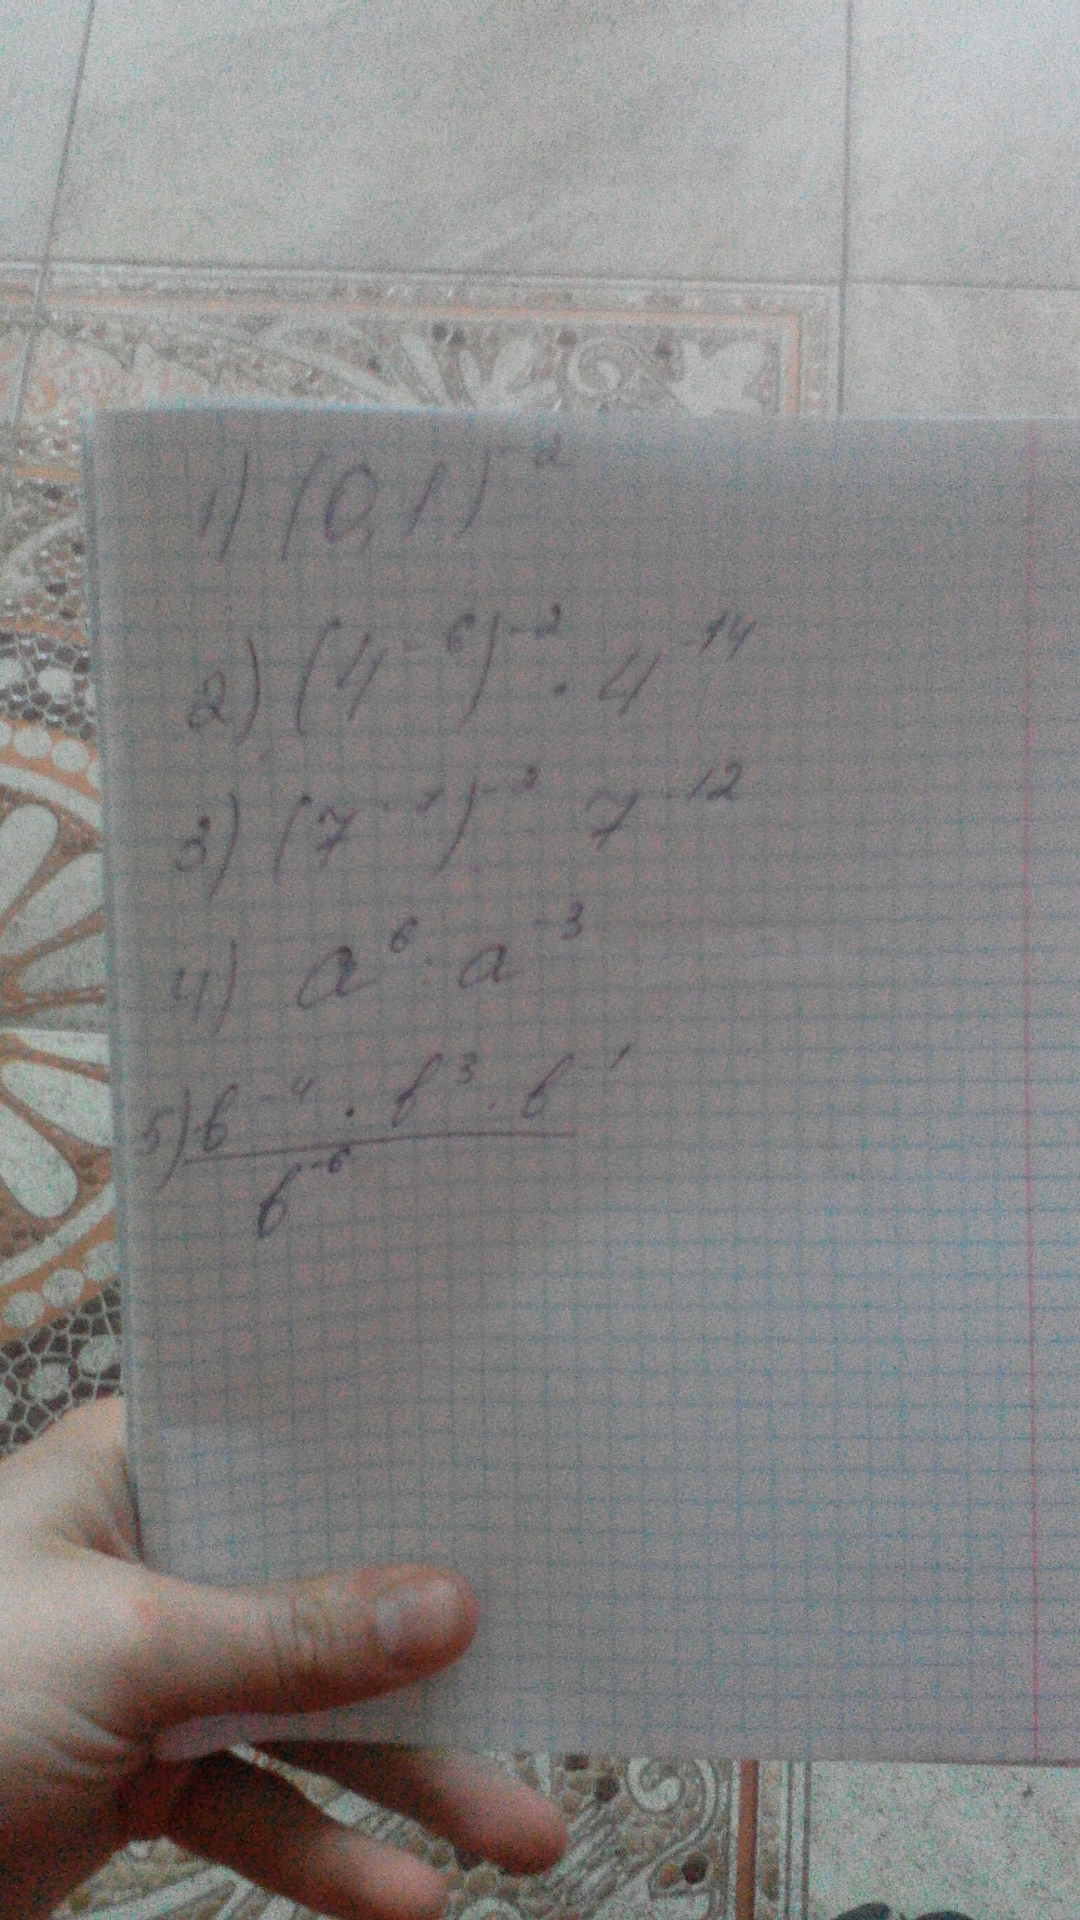 1) (0,1)⁻²
2) (4⁻⁶)⁻² · 4⁻¹⁴
3) (7⁻⁷)⁻² 7⁻¹²
4) a⁶ : a⁻³
5) b⁻⁴ · b³ · b⁻¹
b⁻⁶